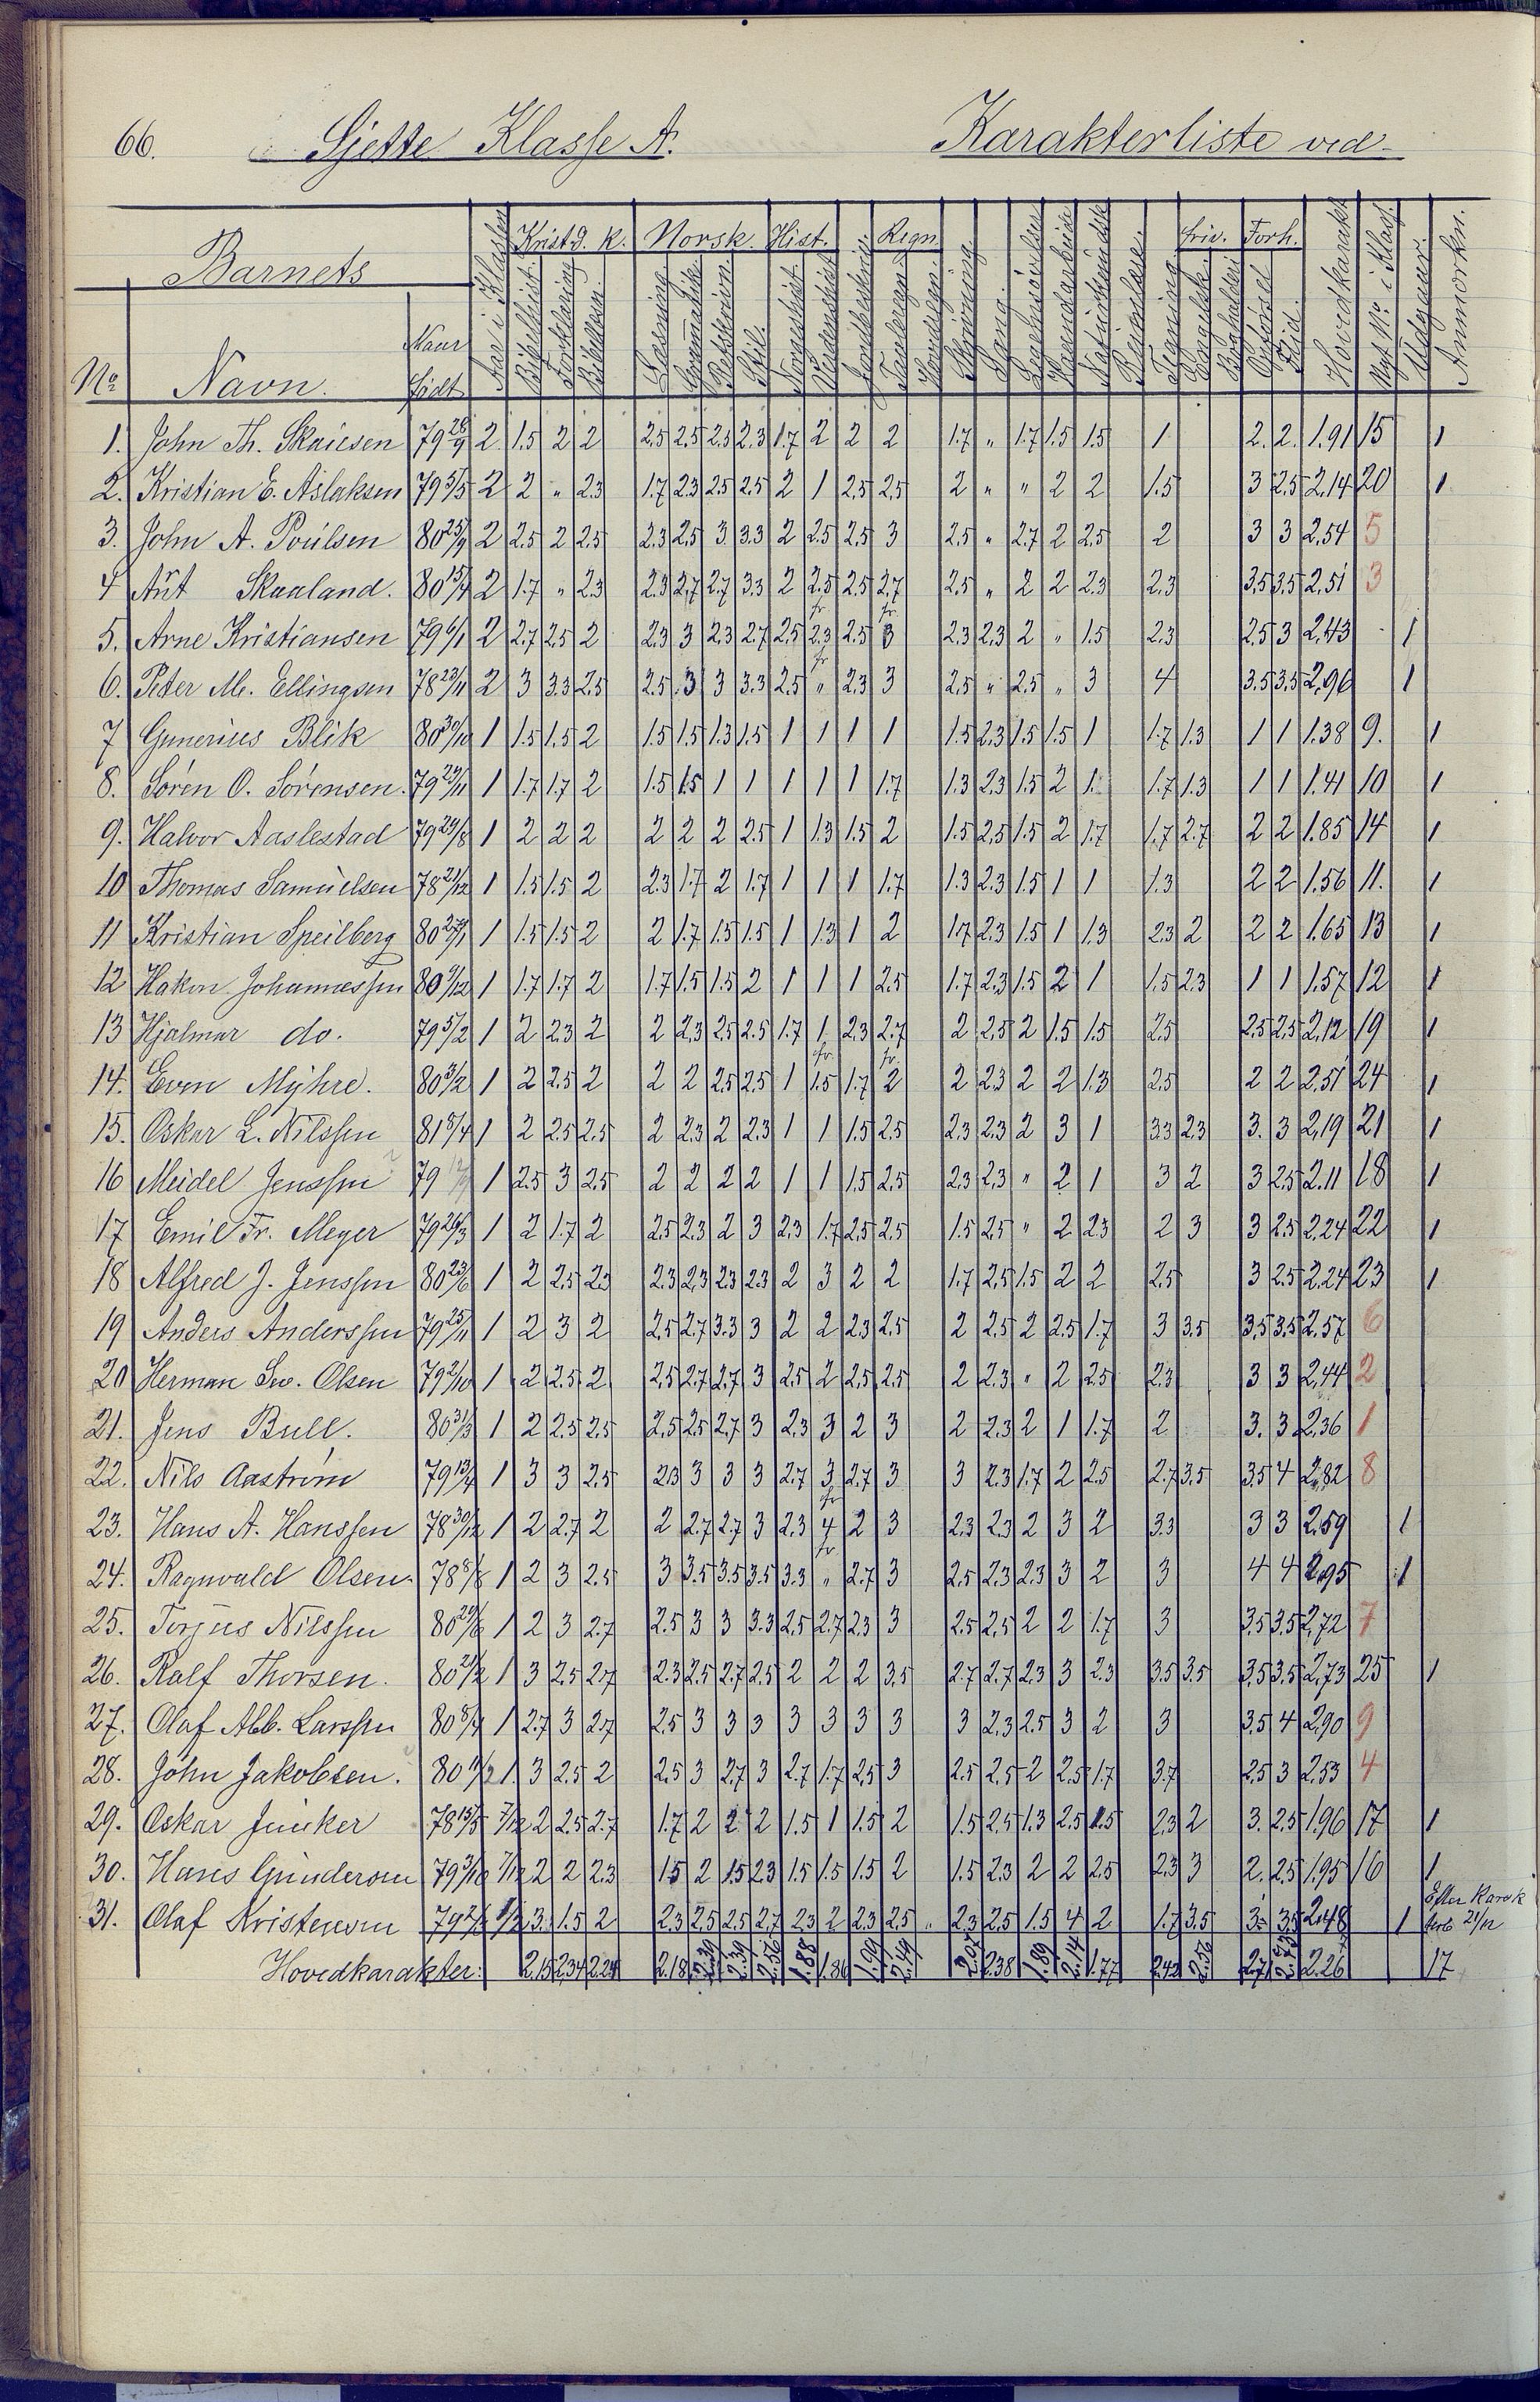 66. Sjette Klasse A. Karakterliste ved
Barnets Aar i Klassen Kristd. k. Norsk. Hist. Regn. friv. Forh. Hovedkarakt. Anmerkn.
No Navn. Naar født Bibelhist. Forklaring Læsning Grammatik Stil. Skrivning Sang. Tegning Engelsk Flid.
1. John Th. Skaiesen 79 28/9 2 1.5 2 2 2.5 2.5 2.3 2.3 1.7 2 2 2 1.7 " 1.7 1.5 1.5 1 2. 2. 1.91 15 1
2. Kristian E. Aslaksen 79 5/5 2 2 " 2.3 1.7 2.3 2.5 2.5 2 1 2.5 2.5 2 " " 2 2 1.5 3 2.5 2.14 20 1
3. John A. Poulsen 80 25/9 2 2.5 2 2.5 2.3 2.5 3 3.3 2 2.5 2.5 3 2.5 " 2.7 2 2.5 2 3 3 2.54 5
4 Aut Skaaland. 80 15/4 2 1.7 " 2.3 2.3 2.7 2.7 3.3 2 2.5 2.5 2.7 2.5 " 2 2 2.3 2.3 3.5 3.5 2.51 3
5. Arne Kristiansen 79 6/1 2 2.7 2.5 2 2.3 3 2.3 2.7 2.5 fr 2.3 2.5 fr 3 2.3 2.3 2 " 1.5 2.3 2.5 3 2.43 1
6. Peter M. Ellingsen 78 23/11 2 3 3.3 2.5 2.5 3 3 3.3 2.5 fr " 2.3 3 2.5 " 2.5 " 3 4 3.5 3.5 2.96 1
7 Gunerius Blik 80 30/10 1 1.5 1.5 2 1.5 1.5 1.3 1.5 1 1 1 1 1.5 2.3 1.5 1.5 1 1.7 1.3 1 1 1.38 9. 1
8. Søren O. Sørensen. 79 29/11 1 1.7 1.7 2 1.5 1.5 1 1 1 1 1 1.7 1.3 2.3 1.5 2 1. 1.7 1.3 1 1 1.41 10 1
9. Halvor Aaslestad 79 29/8 1 2 2 2 2 2 2 2.5 1 1.3 1.5 2 1.5 2.5 1.5 2 1.7 1.7 2.7 2 2 1.85 14 1
10 Thomas Samuelsen 78 21/12 1 1.5 1.5 2 2.3 1.7 2 1.7 1 1 1 1.7 1.3 2.3 1.5 1 1 1.3 2 2 1.56 11. 1
11 Kristian Speilberg 80 27/1 1 1.5 1.5 2 2 1.7 1.5 1.5 1 1.3 1 2 1.7 2.3 1.5 1 1.3 2.3 2 2 2 1.65 13 1
12 Hakon Johannessen 80 9/12 1 1.7 1.7 2 1.7 1.5 1.5 2 1 1 1 2.5 1.7 2.3 1.5 2 1 1.5 2.3 1 1 1.57 12 1
13 Hjalmar do. 79 5/2 1 2 2.3 2 2 2.3 2.5 2.5 1.7 1 2.3 2.7 2 2.5 2 1.5 1.5 2.5 2.5 2.5 2.12 19 1
14. Even Myhre. 80 3/2 1 2 2.5 2 2 2 2.5 2.5 1 fr 1.5 1.7 fr 2 2 2.3 2 2 1.3 2.5 2 2 2.51 24 1
15. Oskar L. Nilssen 81 8/4 1 2 2.5 2.5 2 2.3 2 2.3 1 1 1.5 2.5 2.3 2.3 2 3 1 3.3 2.3 3. 3 2.19 21 1
16 Meidel Jenssen 79 1 2.5 3 2.5 2 2 2 2 1 1 1.5 2.5 2.3 2.3 " 2 1 3 2 3 2.5 2.11 18 1
17 Emil Fr. Meyer 79 26/3 1 2 1.7 2 2.5 2.3 2 3 2.3 1.7 2.5 2.5 1.5 2.5 " 2 2.3 2 3 3 2.5 2.24 22 1
18 Alfred J. Jenssen 80 23/6 1 2 2.5 2.3 2.3 2.3 2.3 2.3 2 3 2 2 1.7 2.5 1.5 2 2 2.5 3 2.5 2.24 23 1
19 Anders Anderssen 79 25/11 1 2 3 2 2.5 2.7 3.3 3 2 2 2.3 2.5 2 2.5 2 2.5 1.7 3 3.5 3.5 3.5 2.57 6
20 Herman Sev. Olsen 79 2/10 1 2 2.5 2 2.5 2.7 2.7 3 2.5 2 2.5 2.5 2 2.3 " 2 2.5 2.3 3 3 2.44 2
21. Jens Bull. 80 31/3 1 2 2.5 2.5 2.5 2.5 2.7 3 2.3 3 2 3 2 2.3 2 1 1.7 2 3. 3 2.36 1
22. Nils Aastrøm 79 13/4 1 3 3 2.5 2.3 3 3 3 2.7 3 2.7 3 3 2.3 1.7 2 2.5 2.7 3.5 3.5 4 2.82 8
23. Hans A. Hanssen 78 30/12 1 2 2.7 2 2 2.7 2.7 3 2.3 fr 4 2 3 2.3 2.3 2 3 2 3.3 3 3 2.59 1
24. Ragnvald Olsen. 78 8/8 1 2 3 2.5 3 3.5 3.5 3.5 3.3 fr " 2.7 3 2.5 2.3 2.3 3 2 3 4 4 2.95 1
25. Torjus Nilssen 80 29/6 1 2 3 2.7 2.5 3 3 3.3 2.5 2.7 2.3 3 2.5 2.5 2 2 1.7 3 3.5 3.5 2.72 7
26. Ralf Thorsen. 80 21/2 1 3 2.5 2.7 2.3 2.5 2.7 2.5 2 2 2 3.5 2.7 2.7 2.3 3 2.3 3.5 3.5 3.5 3.5 2.73 25 1
27. Olaf Alb. Larssen 80 8/4 1 2.7 3 2.7 2.5 3 3 3 3 3 3 3 3 2.3 2.5 3 2 3 3.5 4 2.90 9
28. John Jakobsen. 80 1. 3 2.5 2 2.5 3 2.7 3 2.7 1.7 2.5 3 2.5 2.5 2 2.5 1.7 3.7 2.5 3 2.53 4
29. Oskar Junker 78 15/5 7/12 2 2.5 2.7 1.7 2 2 2 1.5 1 1.5 2 1.5 2.5 1.3 2.5 1.5 2.3 2 3. 2.5 1.96 17 1
30. Hans Gunderson 79 3/10 7/12 2 2 2.3 1.5 2 1.5 2.3 1.5 1.5 1.5 2 1.5 2.3 2 2 2.5 2.3 3 2. 2.5 1.95 16 1
31. Olaf Kristenson 79 3. 1.5 2 2.3 2.5 2.5 2.7 2.3 2 2.3 2.5 " 2.3 2.5 1.5 4 2 1.7 3.5 3 3.5 2.48 1 21/12
Hovedkarakter: 2.15 2.34 2.24 2.18 2.39 2.39 2.56 1.88 1.86 1.99 2.49 2.07 2.38 1.89 2.14 1.77 2.42 2.56 2.71 2.26 17